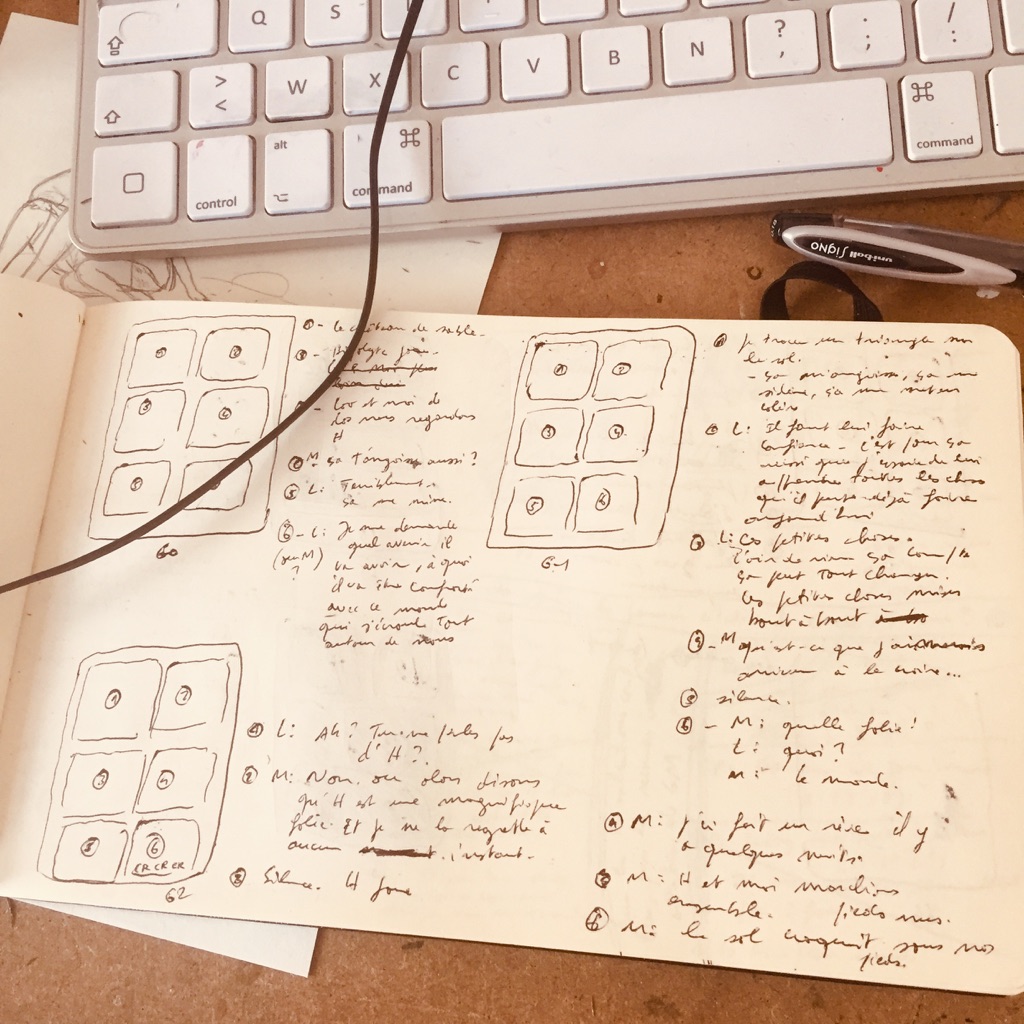 Q S
> < W X C V B N ? , ; . / :
alt
control command command
uni-ball SIGNO
① - Le château de sable.
② - Hippolyte joue.
- Lou et moi de
dos nous regardons
H
④ M: ça t'angoisse aussi?
⑤ L: Terriblement.
ça me mine.
⑥ - L: Je me demande
(ou M) quel avenir il
? va avoir, à quoi
il va être confronté
avec ce monde
qui s'écroule tout
autour de nous
60
① Je trace un triangle sur
le sol.
- ça m'angoisse, ça me
sidère, ça me met en
colère
② L: Il faut lui faire
confiance - c'est pour ça
aussi que j'essaie de lui
apprendre toutes les choses
qu'il peut déjà faire
aujourd'hui
③ L: Ces petites choses.
L'air de rien ça compte
ça peut tout changer.
les petites choses mises
bout à bout
④ - M qu'est-ce que j'aimerais
arriver à le croire...
⑤ silence.
⑥ - M: quelle folie!
L: quoi?
M: le monde.
61
① L: Ah? Tu ne parles pas
d'H?
② M: Non. ou alors disons
qu'H est une magnifique
folie. Et je ne la regrette à
aucun instant.
③ Silence. H joue
④ M: J'ai fait un rêve il y
a quelques nuits.
⑤ M: H et moi marchions
ensemble. pieds nus.
⑥ M: le sol craquait sous nos
pieds.
CR CR CR
62